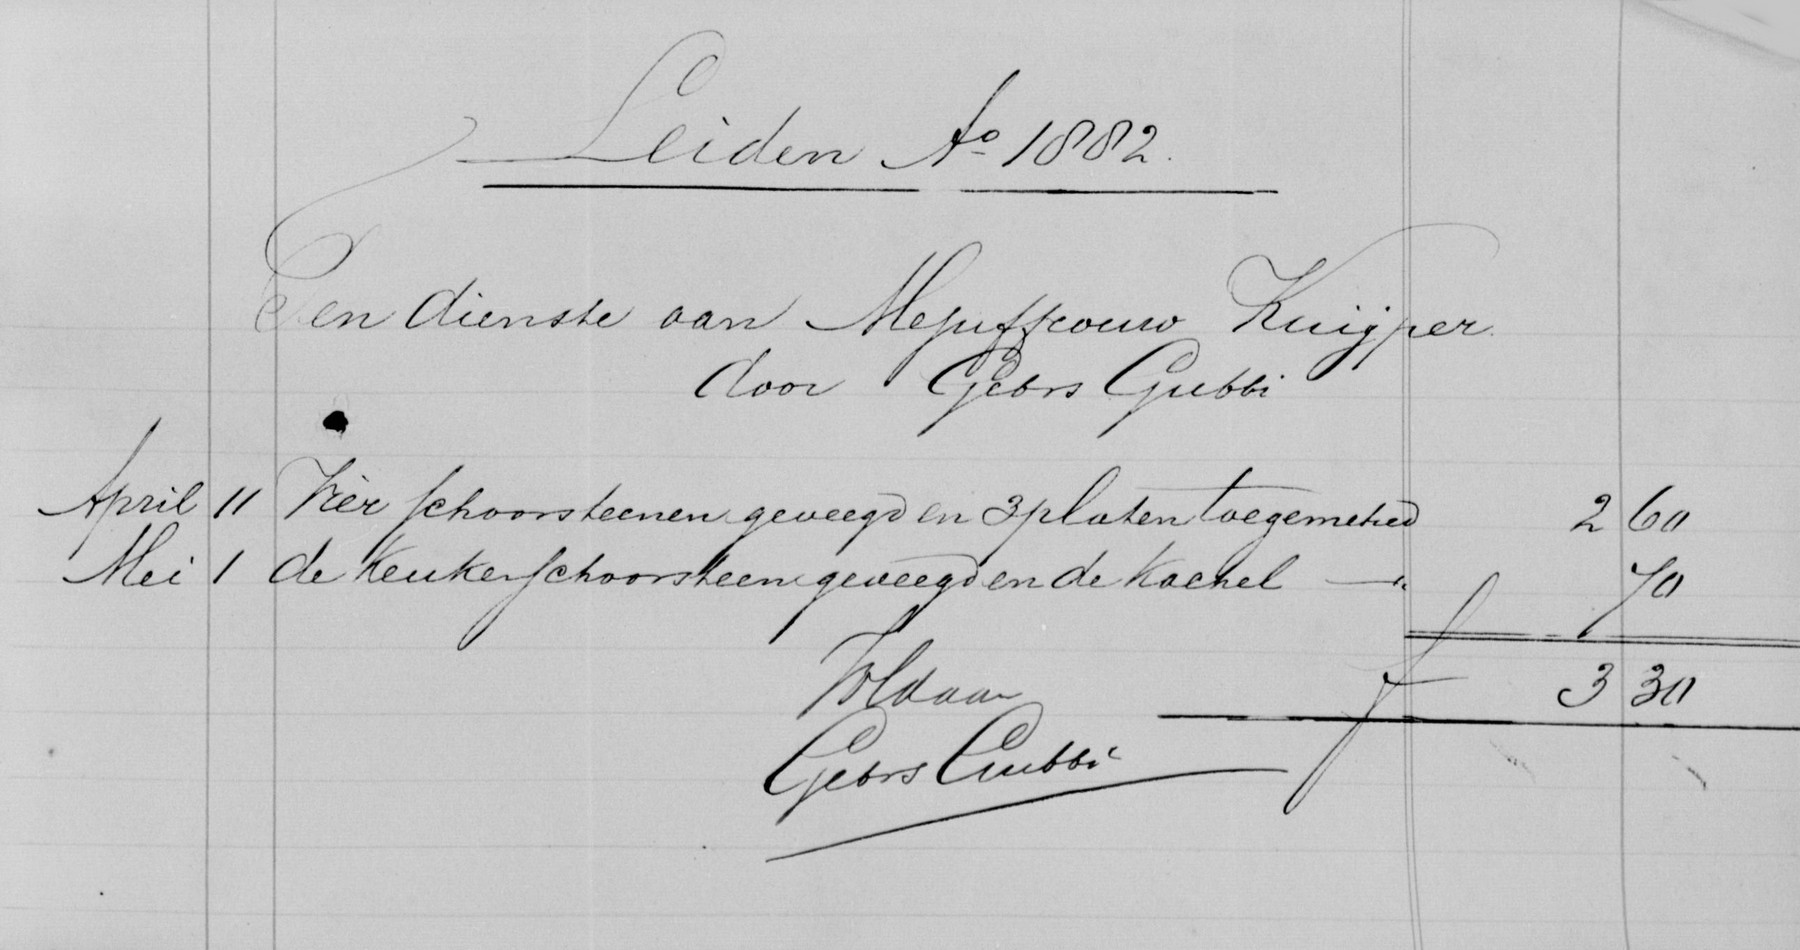 Leiden Ao 1882.
Ten dienste aan Mejuffrouw Kuijper.
door Gebrs Gubbi
April 11 Vier schoorsteenen geveegd en 3 platen toegemetsed 2 60
Mei 1 de keukenschoorsteen geveegd en de kachel — " 70
Voldaan f 3 30
Gebrs Gubbi